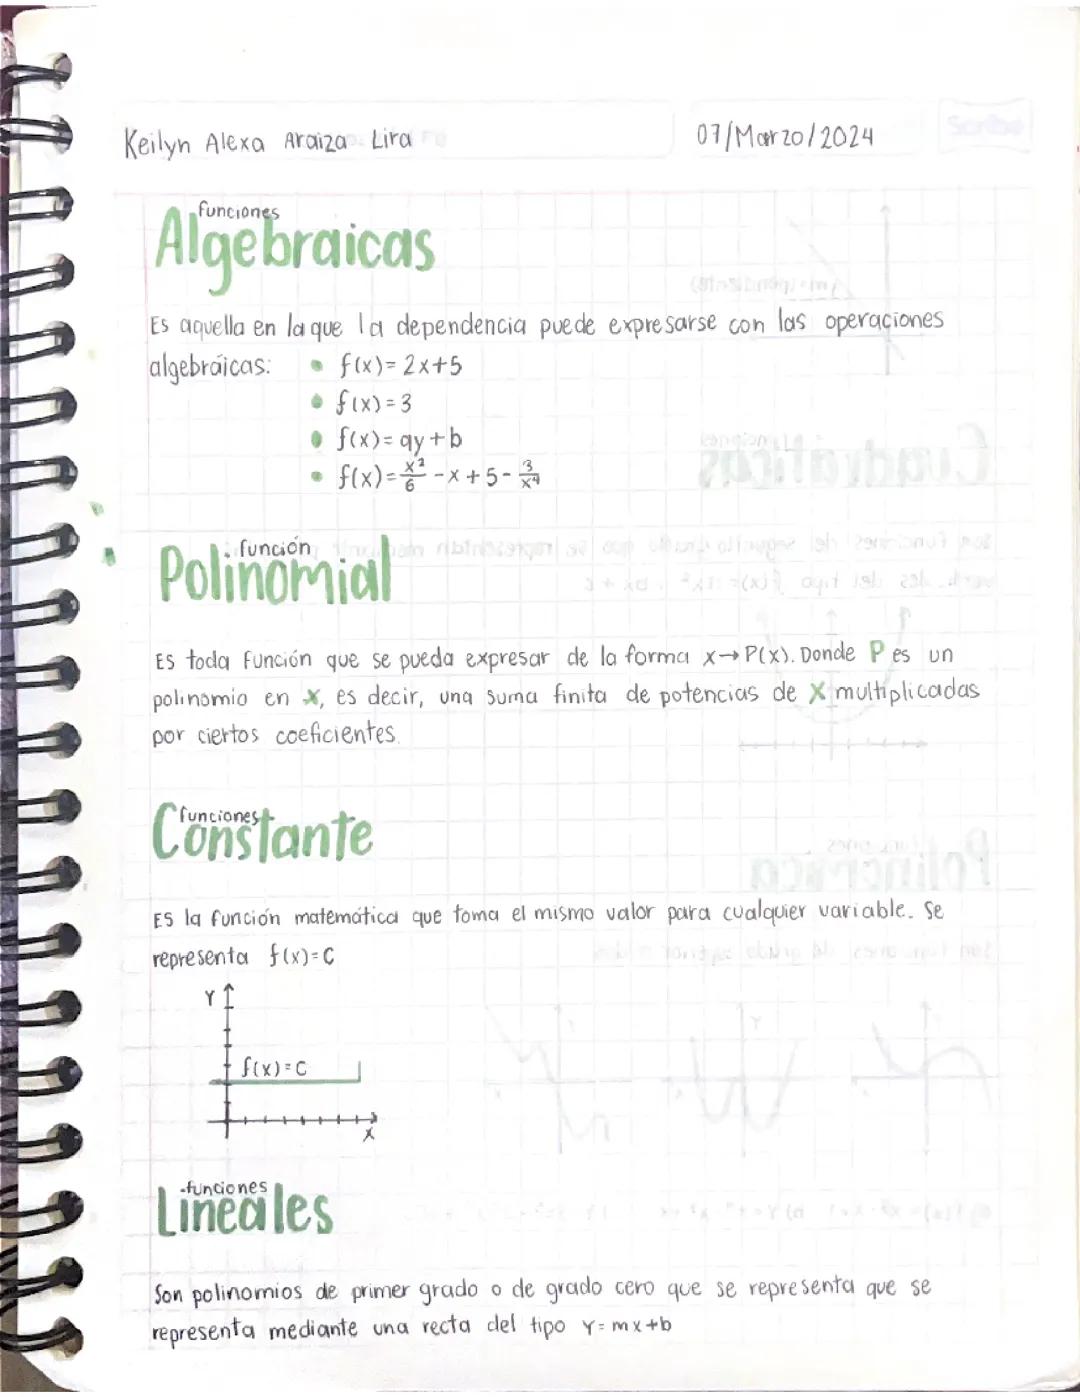 Keilyn Alexa Araiza Lira
07/Marzo/2024
funciones
Algebraicas
Es aquella en la que la dependencia puede expresarse con las operaciones
algebráicas:
• f(x)= 2x+5
• f(x)= 3
• f(x)= ay+b
• f(x)= x²/6 - x + 5 - 3/x⁴
función
Polinomial
Es toda función que se pueda expresar de la forma x→P(x). Donde P es un
polinomio en X, es decir, una suma finita de potencias de X multiplicadas
por ciertos coeficientes.
funciones
Constante
Es la función matemática que toma el mismo valor para cualquier variable. Se
representa f(x)=C
Y
f(x)=C
X
funciones
Lineales
Son polinomios de primer grado o de grado cero que se representa que se
representa mediante una recta del tipo Y=mx+b